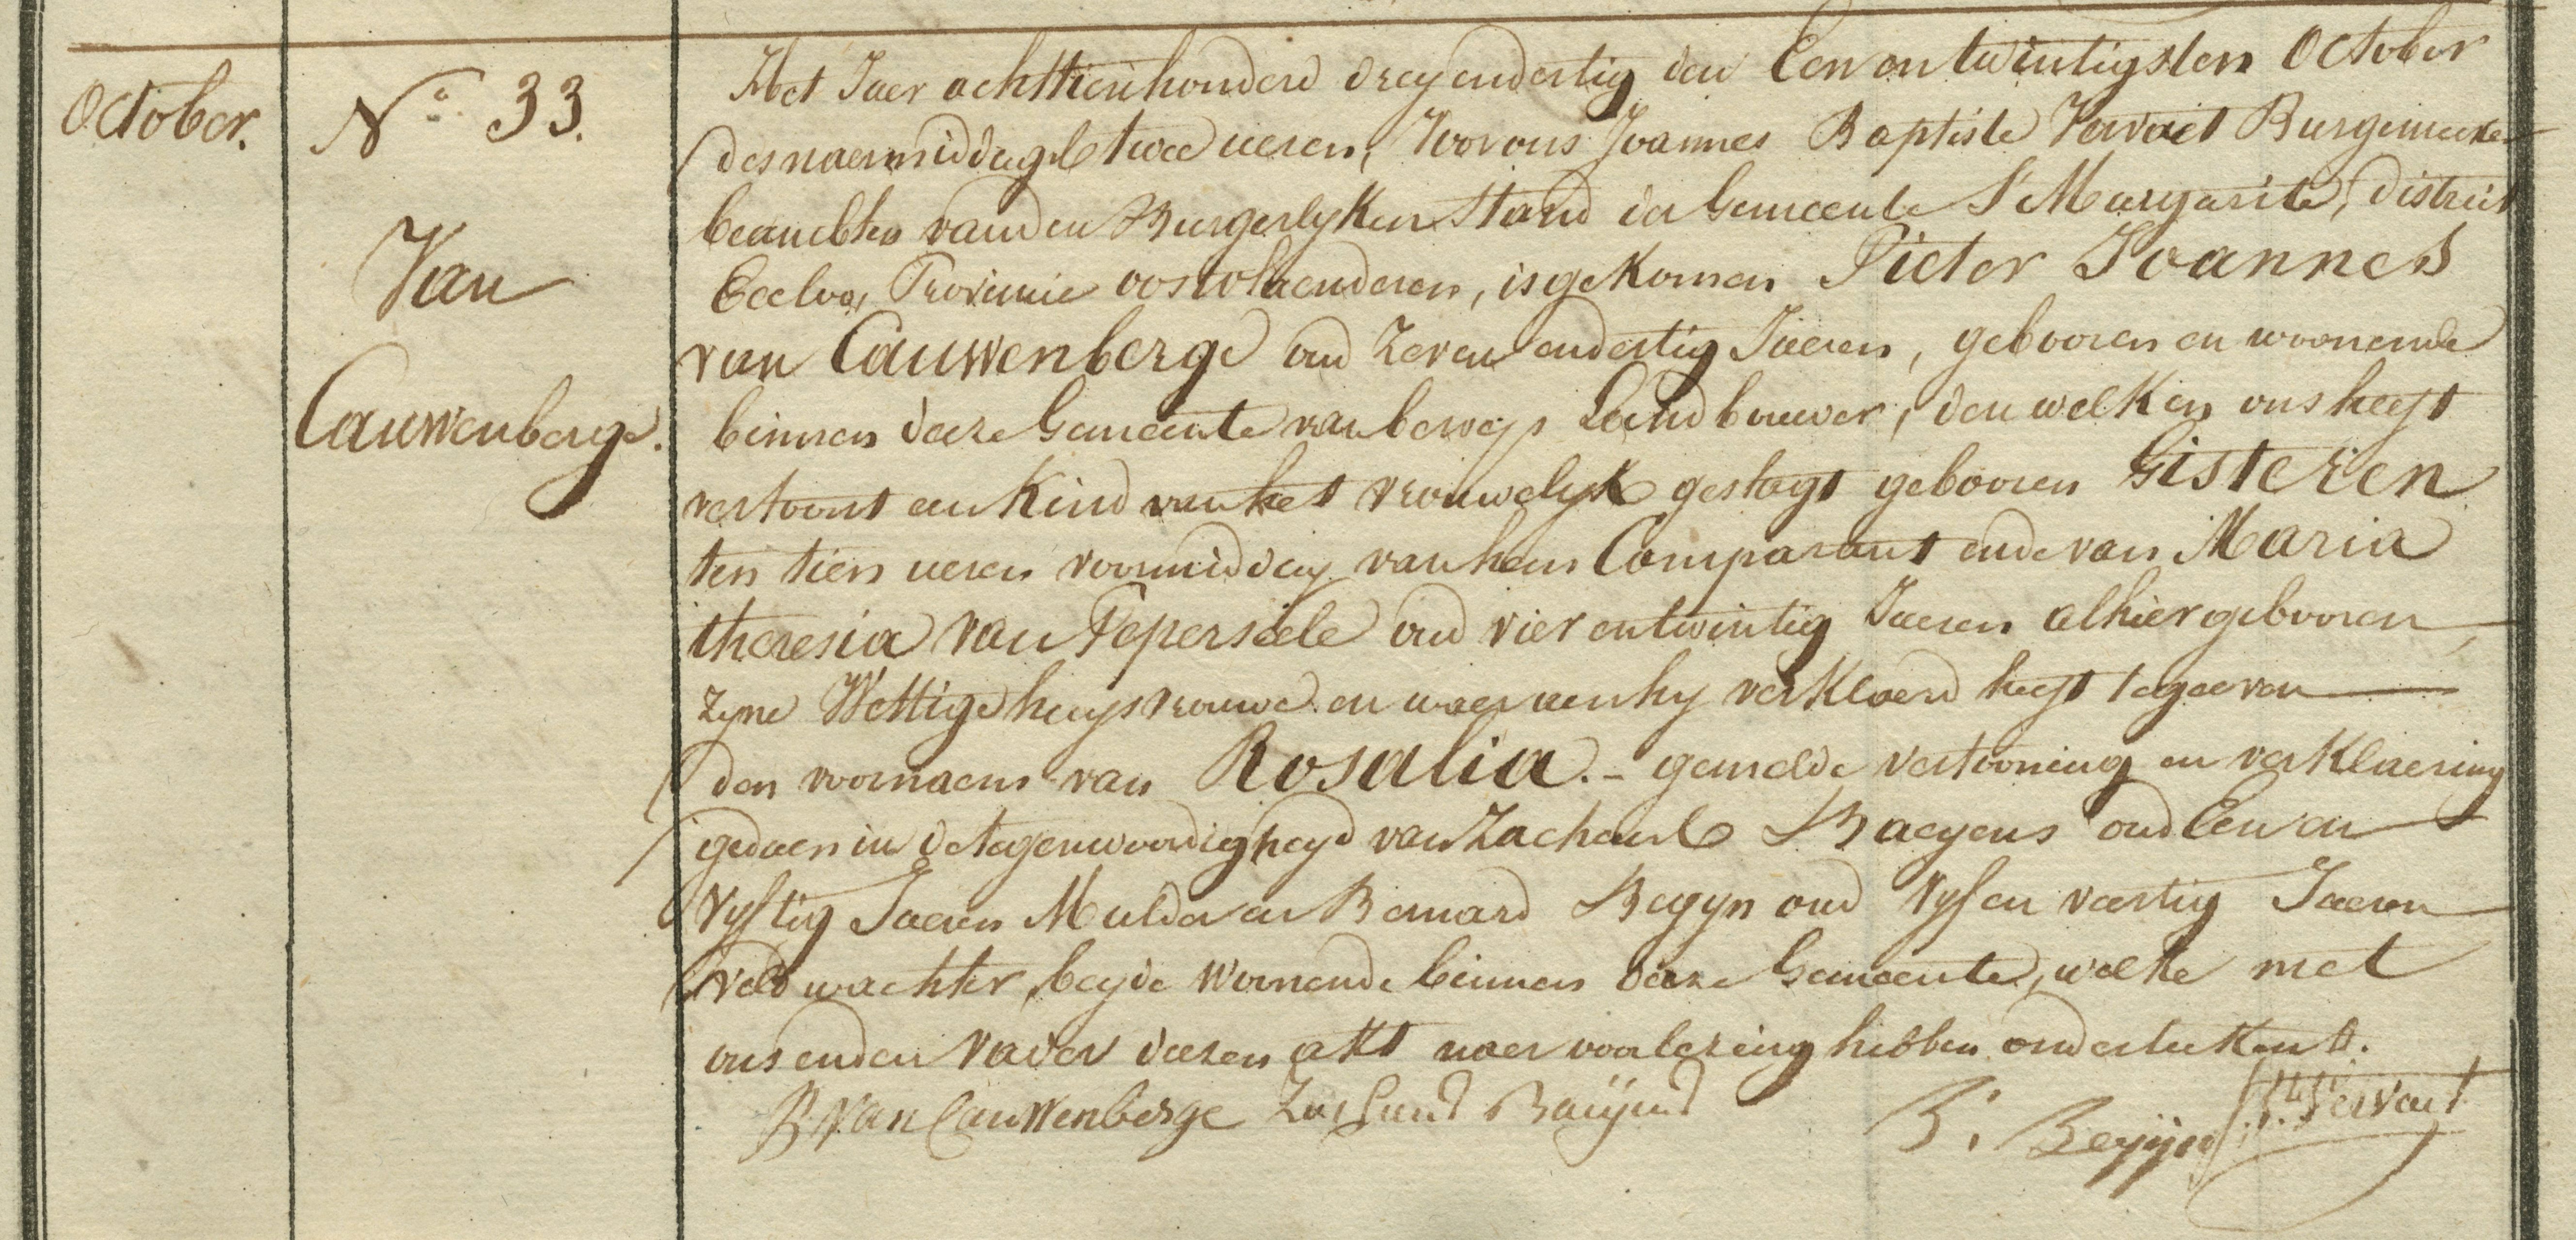 October.
N.o 33.
Van
Cauwenberge.
Het Jaer achttienhonderd dreyendertig den Eenentwintigsten October
des naermiddags twee ueren, Voor ons Joannes Baptiste Vervaet Burgemeester
beambten van den Burgerlyken Stand der Gemeente Ste Margarite, district
Eecloo, Provincie oostvlaenderen, is gekomen Pieter Joannes
van Cauwenberge oud Zeven endertig Jaeren, gebooren en woonende
binnen deeze Gemeente van beroep Landbouwer, den welken ons heeft
vertoont een Kind van het vrouwelyk geslagt gebooren Gisteren
ten tien ueren voormiddag van hem Comparant ende van Maria
theresia van Peperstele oud vier entwintig Jaeren alhier gebooren,
zyne Wettige huysvrouwe en waer aen hy verklaerd heeft te geeven
den voornaem van Rosalia. - gemelde vertooning en verklaering
gedaen in de tegenwoordigheyd van Zacheus Baeyens oud Een en
Vyftig Jaeren Mulder en Bernard Begyn oud Vyf en veertig Jaeren
Veldwachter, beyde woonende binnen deeze Gemeente, welke met
ons en den Vader deezen akt naer voorlezing hebben onderteekent.
P J Van Cauwenberge Zacheus Baeyens
B. Begyn J.B. Vervaet